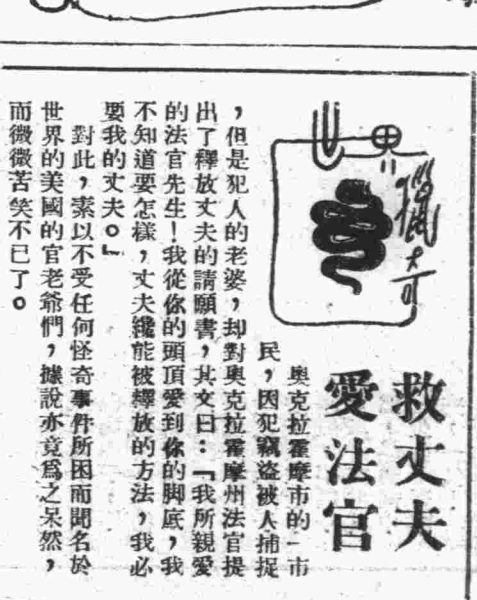 救丈夫
愛法官
奧克拉霍摩市的一市
民，因犯竊盜被人捕捉
，但是犯人的老婆，却對奧克拉霍摩州法官提
出了釋放丈夫的請願書，其文曰：「我所親愛
的法官先生！我從你的頭頂愛到你的脚底，我
不知道要怎樣，丈夫纔能被釋放的方法，我必
要我的丈夫。」
對此，素以不受任何怪奇事件所困而聞名於
世界的美國的官老爺們，據說亦竟爲之呆然，
而微微苦笑不已了。